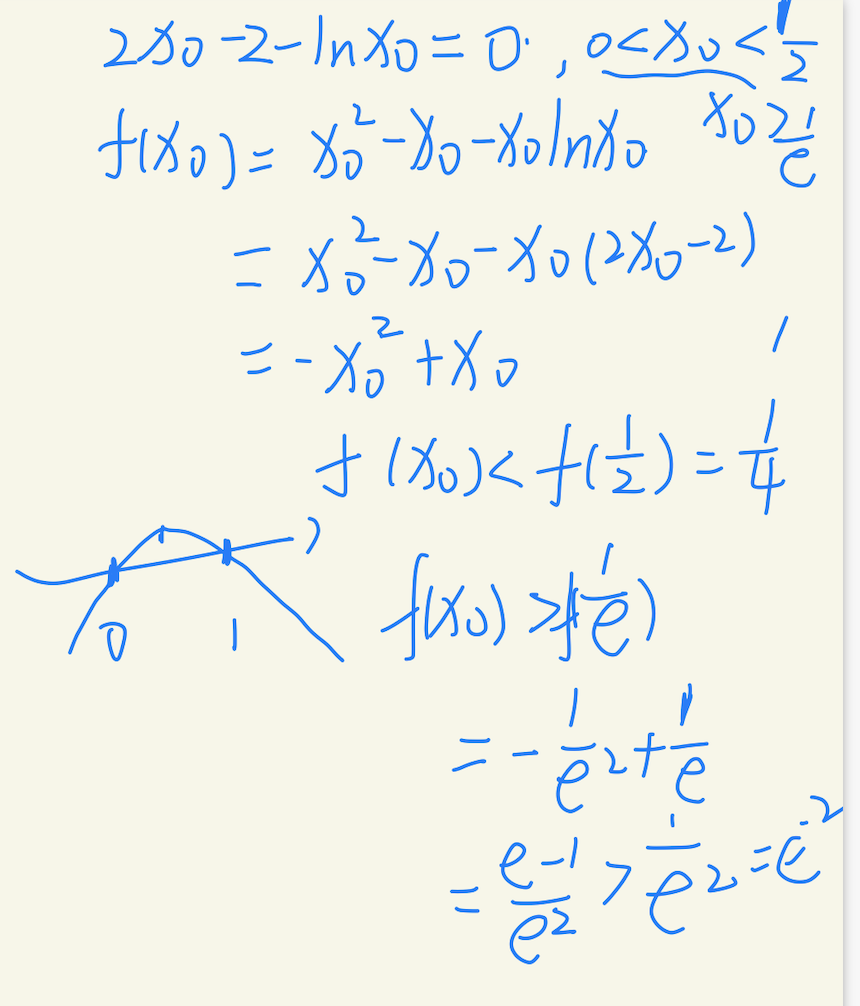 2x₀-2-lnx₀=0, 0<x₀<1/2
x₀>1/e
f(x₀)=x₀²-x₀-x₀lnx₀
=x₀²-x₀-x₀(2x₀-2)
=-x₀²+x₀
f(x₀)<f(1/2)=1/4
0 1
f(x₀)>f(1/e)
=-1/e²+1/e
=e-1/e²>1/e²=e⁻²